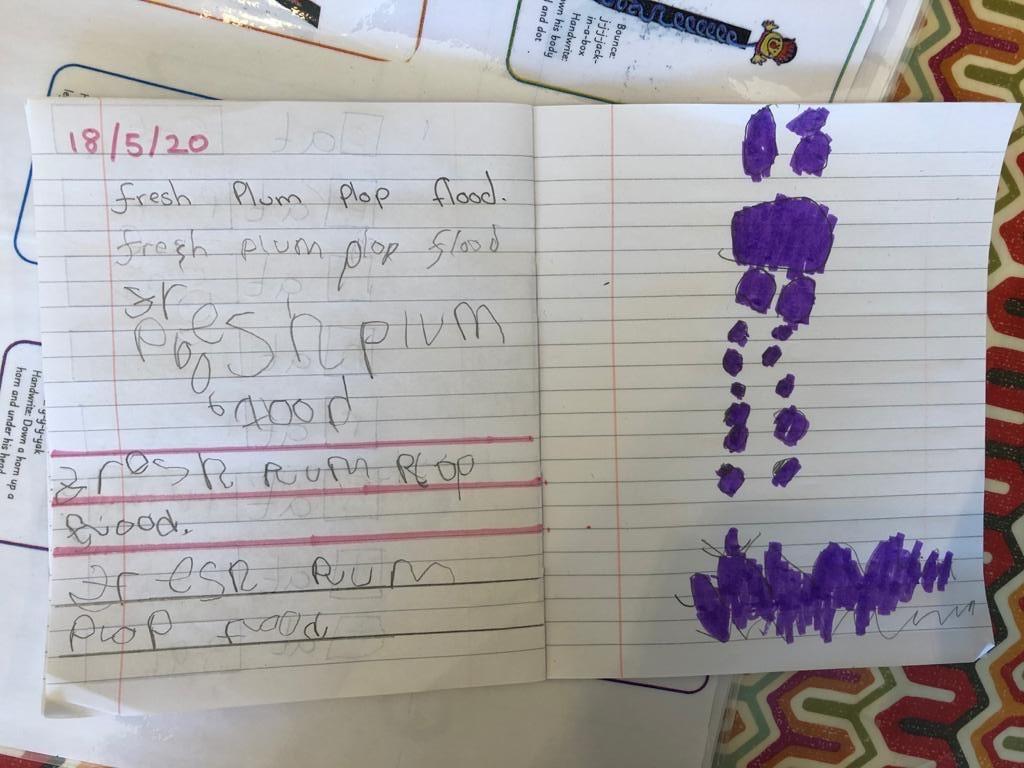 Bounce:
jjjjack-
in-a-box
Handwrite:
his body
and dot
18/5/20
fresh plum plop flood.
fresh plum plop flood
fre
plosh plum
flood
fresh plum plop
flood.
fresh plum
plop flood
y-y-y-yak
Handwrite: Down a horn up a
horn and under his head